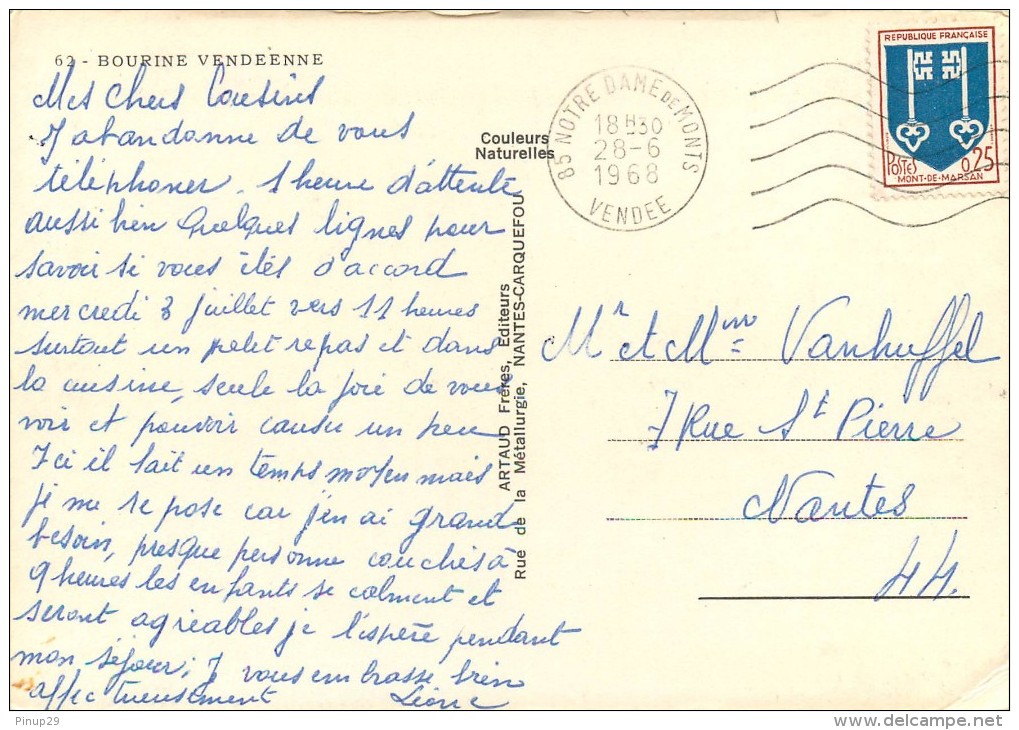 62 - BOURINE VENDEENNE
Mes Chers Cousins
J'abandonne de vous
téléphoner. 1 heure d'attente
aussi bien quelques lignes pour
savoir si vous êtes d'accord
mercredi 3 juillet vers 11 heures
surtout un petit repas et dans
la cuisine, seule la joie de vous
voir et pouvoir causer un peu
Ici il fait un temps moyen mais
je me repose car j'en ai grand
besoin, presque personne couchés à
9 heures les enfants se calment et
seront agréables je l'espère pendant
mon séjour; J vous embrasse bien
affectueusement
Couleurs
Naturelles
ARTAUD Frères, Editeurs
Rue de la Métallurgie, NANTES-CARQUEFOU
85 NOTRE DAME DE MONTS
18H30
28-6
1968
VENDEE
REPUBLIQUE FRANÇAISE
POSTES
0,25
MONT-DE-MARSAN
Mr et Mme Vanhuffel
7 Rue St Pierre
Nantes
44.
Pinup29
www.delcampe.net